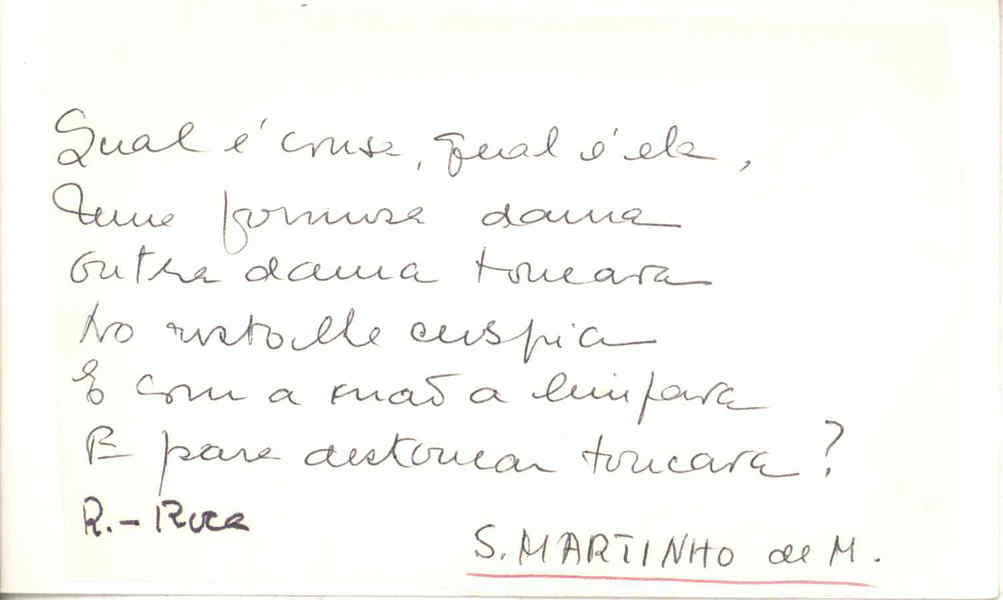 Qual é cousa, qual é ela,
Uma formosa dama
Outra dama toucara
No rosto lhe cuspia
E com a mão a limpara
E para destoucar toucara?
R. - Roca
S. MARTINHO de M.